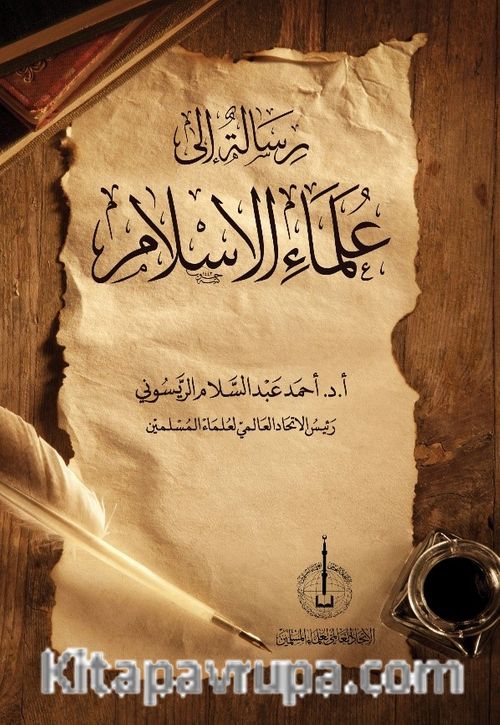 رِسَالَةٌ إلى
عُلَمَاءِ الإِسْلَام
أ.د. أحمد عَبْد السَّلام الرَّيسُوني
رَئيسُ الاتحَاد العَالميّ لعُلمَاءِ المُسْلمين
الاتحاد العالمي لعلماء المسلمين
Kitapavrupa.com